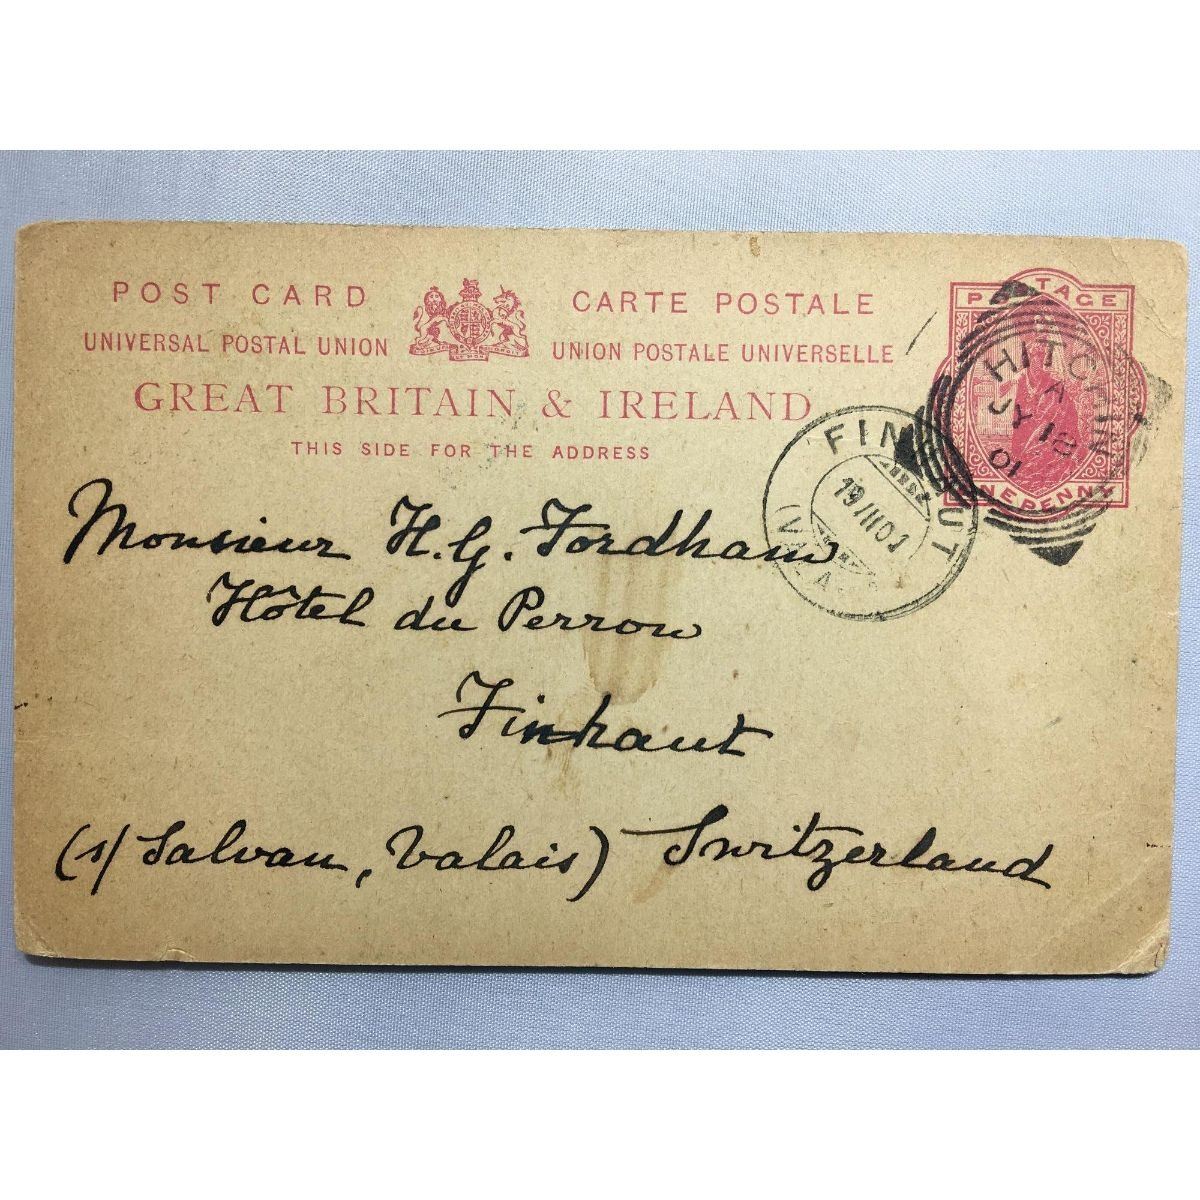 POST CARD CARTE POSTALE
UNIVERSAL POSTAL UNION UNION POSTALE UNIVERSELLE
GREAT BRITAIN & IRELAND
THIS SIDE FOR THE ADDRESS
POSTAGE
ONE PENNY
HITCHIN
A
JY 18
01
FINHAUT
Monsieur H. G. Fordham
Hôtel du Perron
Finhaut
(s/ Salvan, Valais) Switzerland